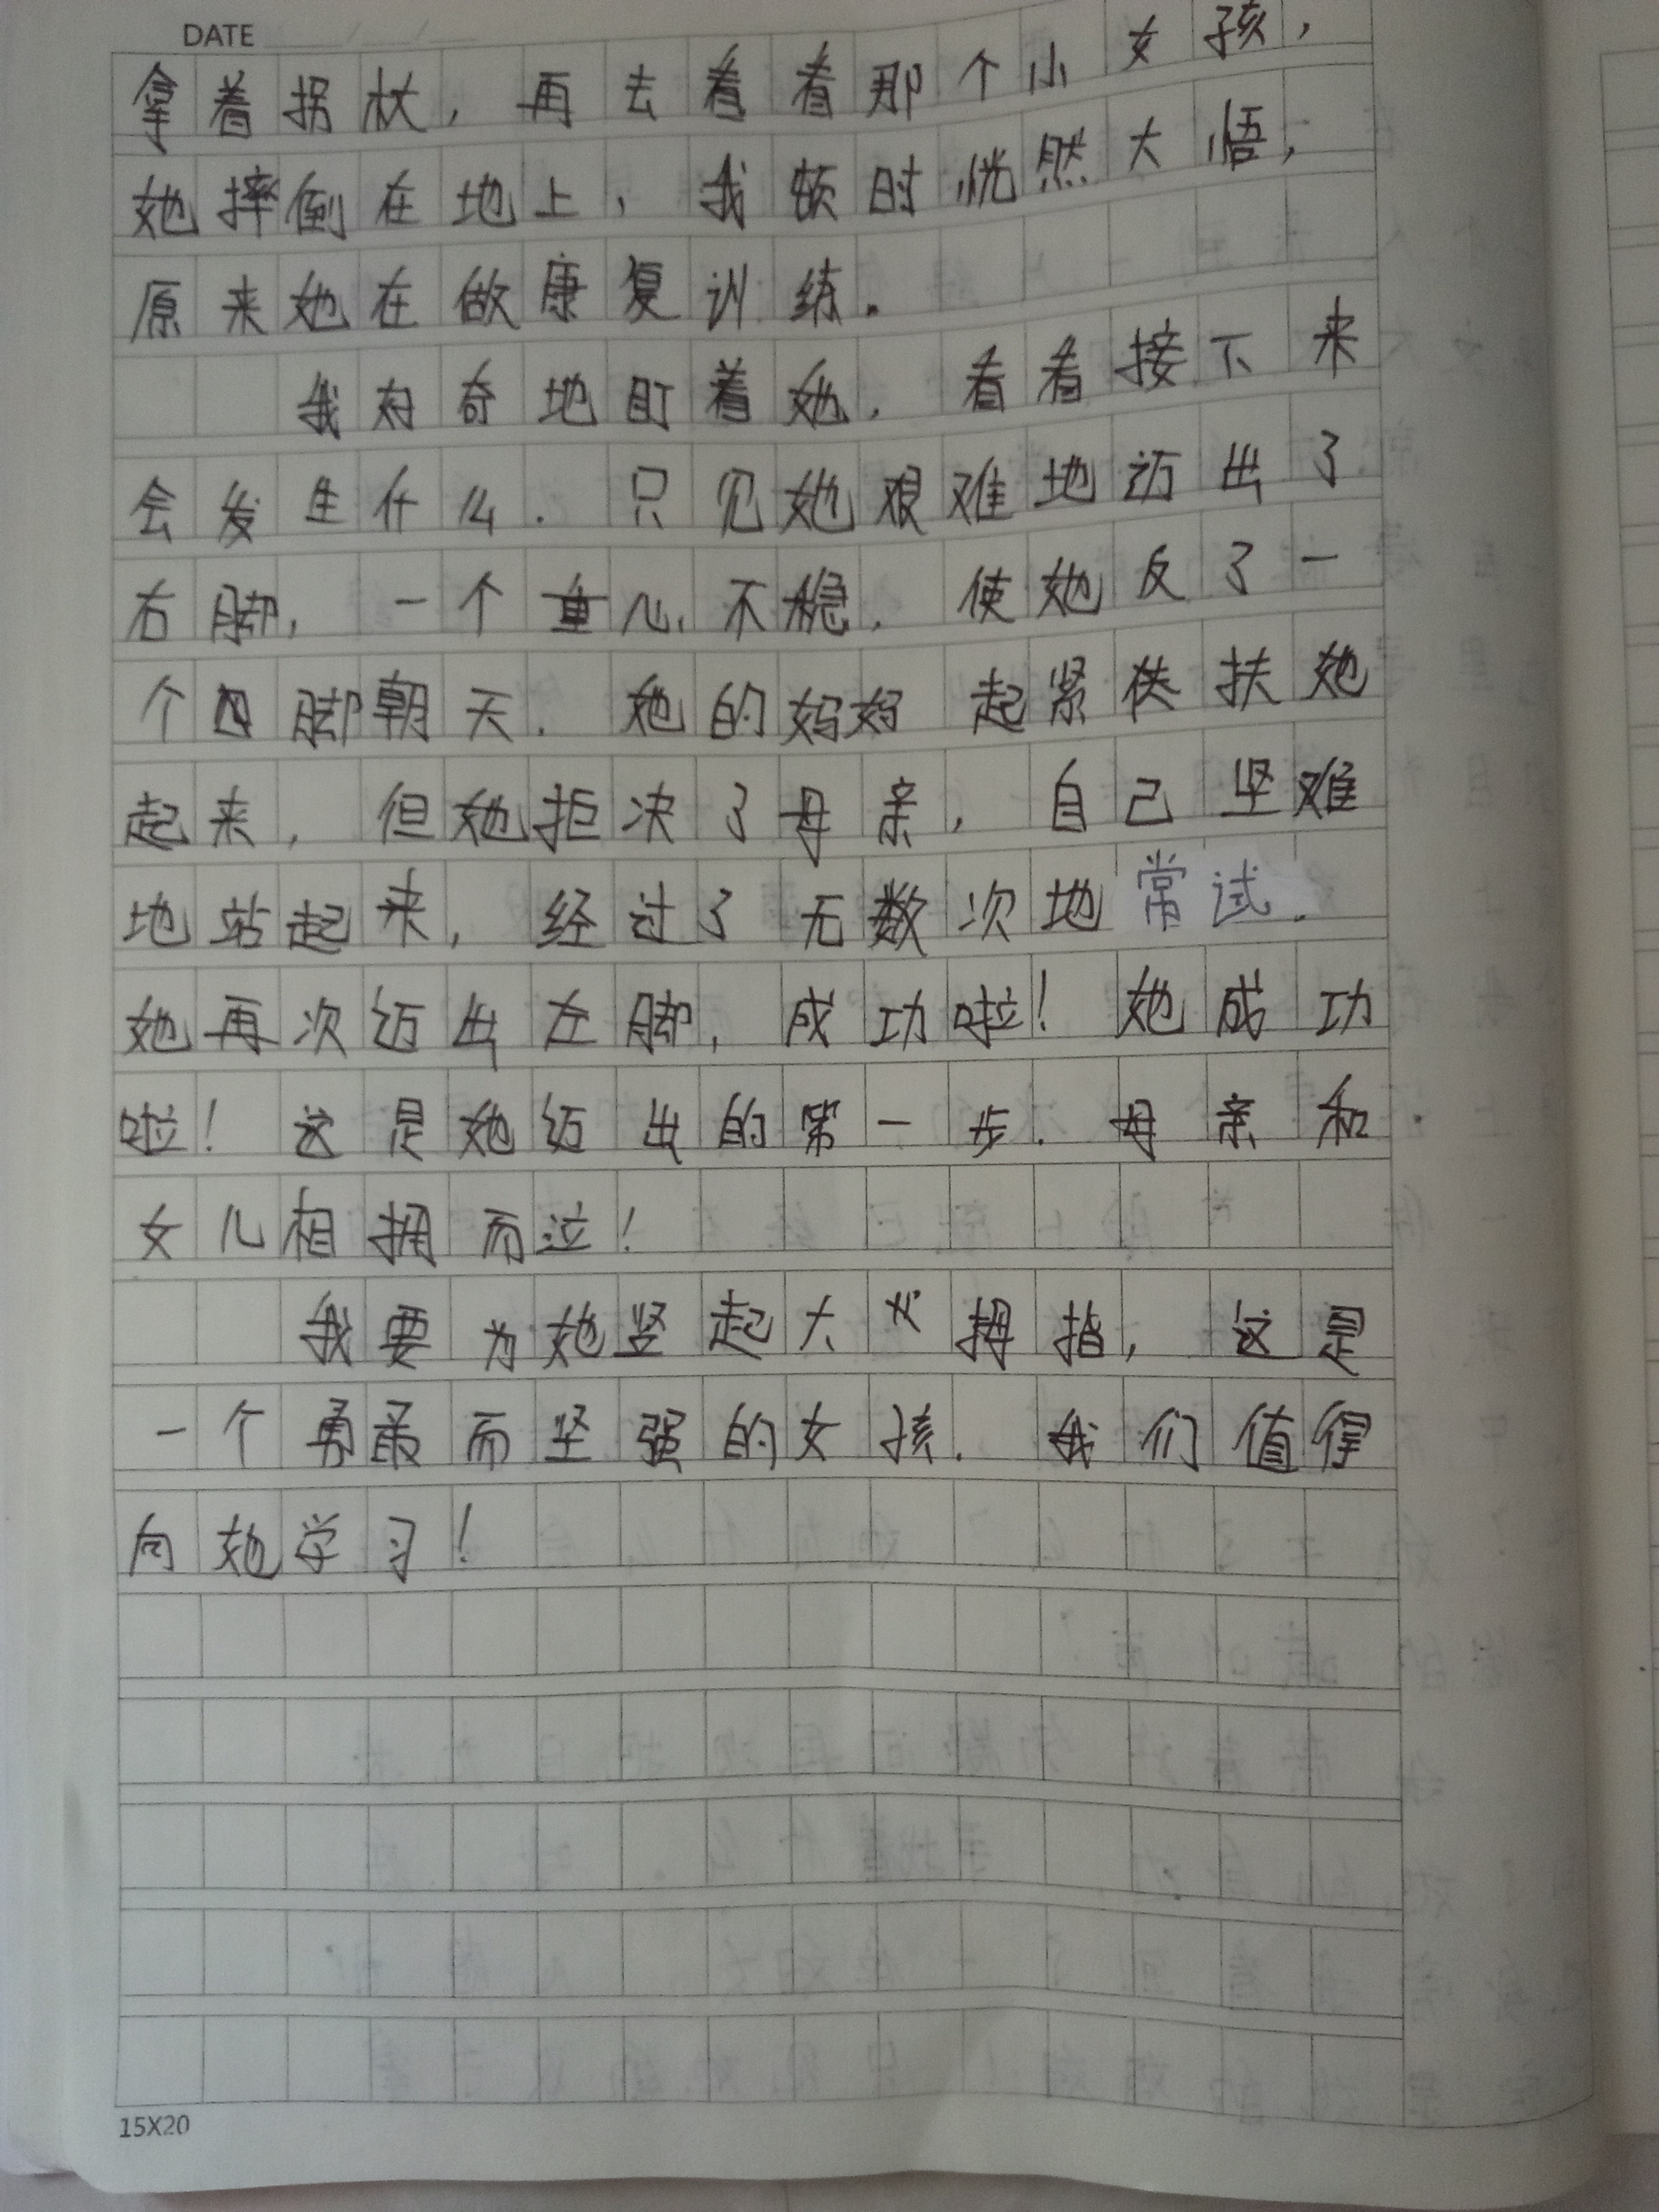 DATE
拿着拐杖，再去看看那个小女孩，
她摔倒在地上，我顿时恍然大悟，
原来她在做康复训练。
我好奇地盯着她，看看接下来
会发生什么。只见她艰难地迈出了
右脚，一个重心不稳，使她反了一
个四脚朝天。她的妈妈起紧扶她
起来，但她拒决了母亲，自己坚难
地站起来，经过了无数次地常试。
她再次迈出左脚，成功啦！她成功
啦！这是她迈出的第一步。母亲和
女儿相拥而泣！
我要为她竖起大拇指，这是
一个勇敢而坚强的女孩。我们值得
向她学习！
15X20